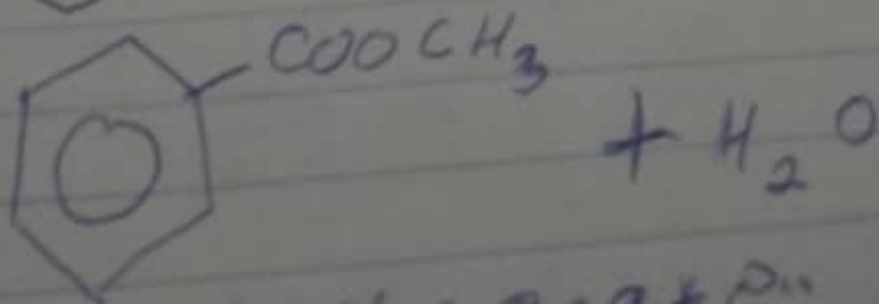 COOCH₃
+ H₂O